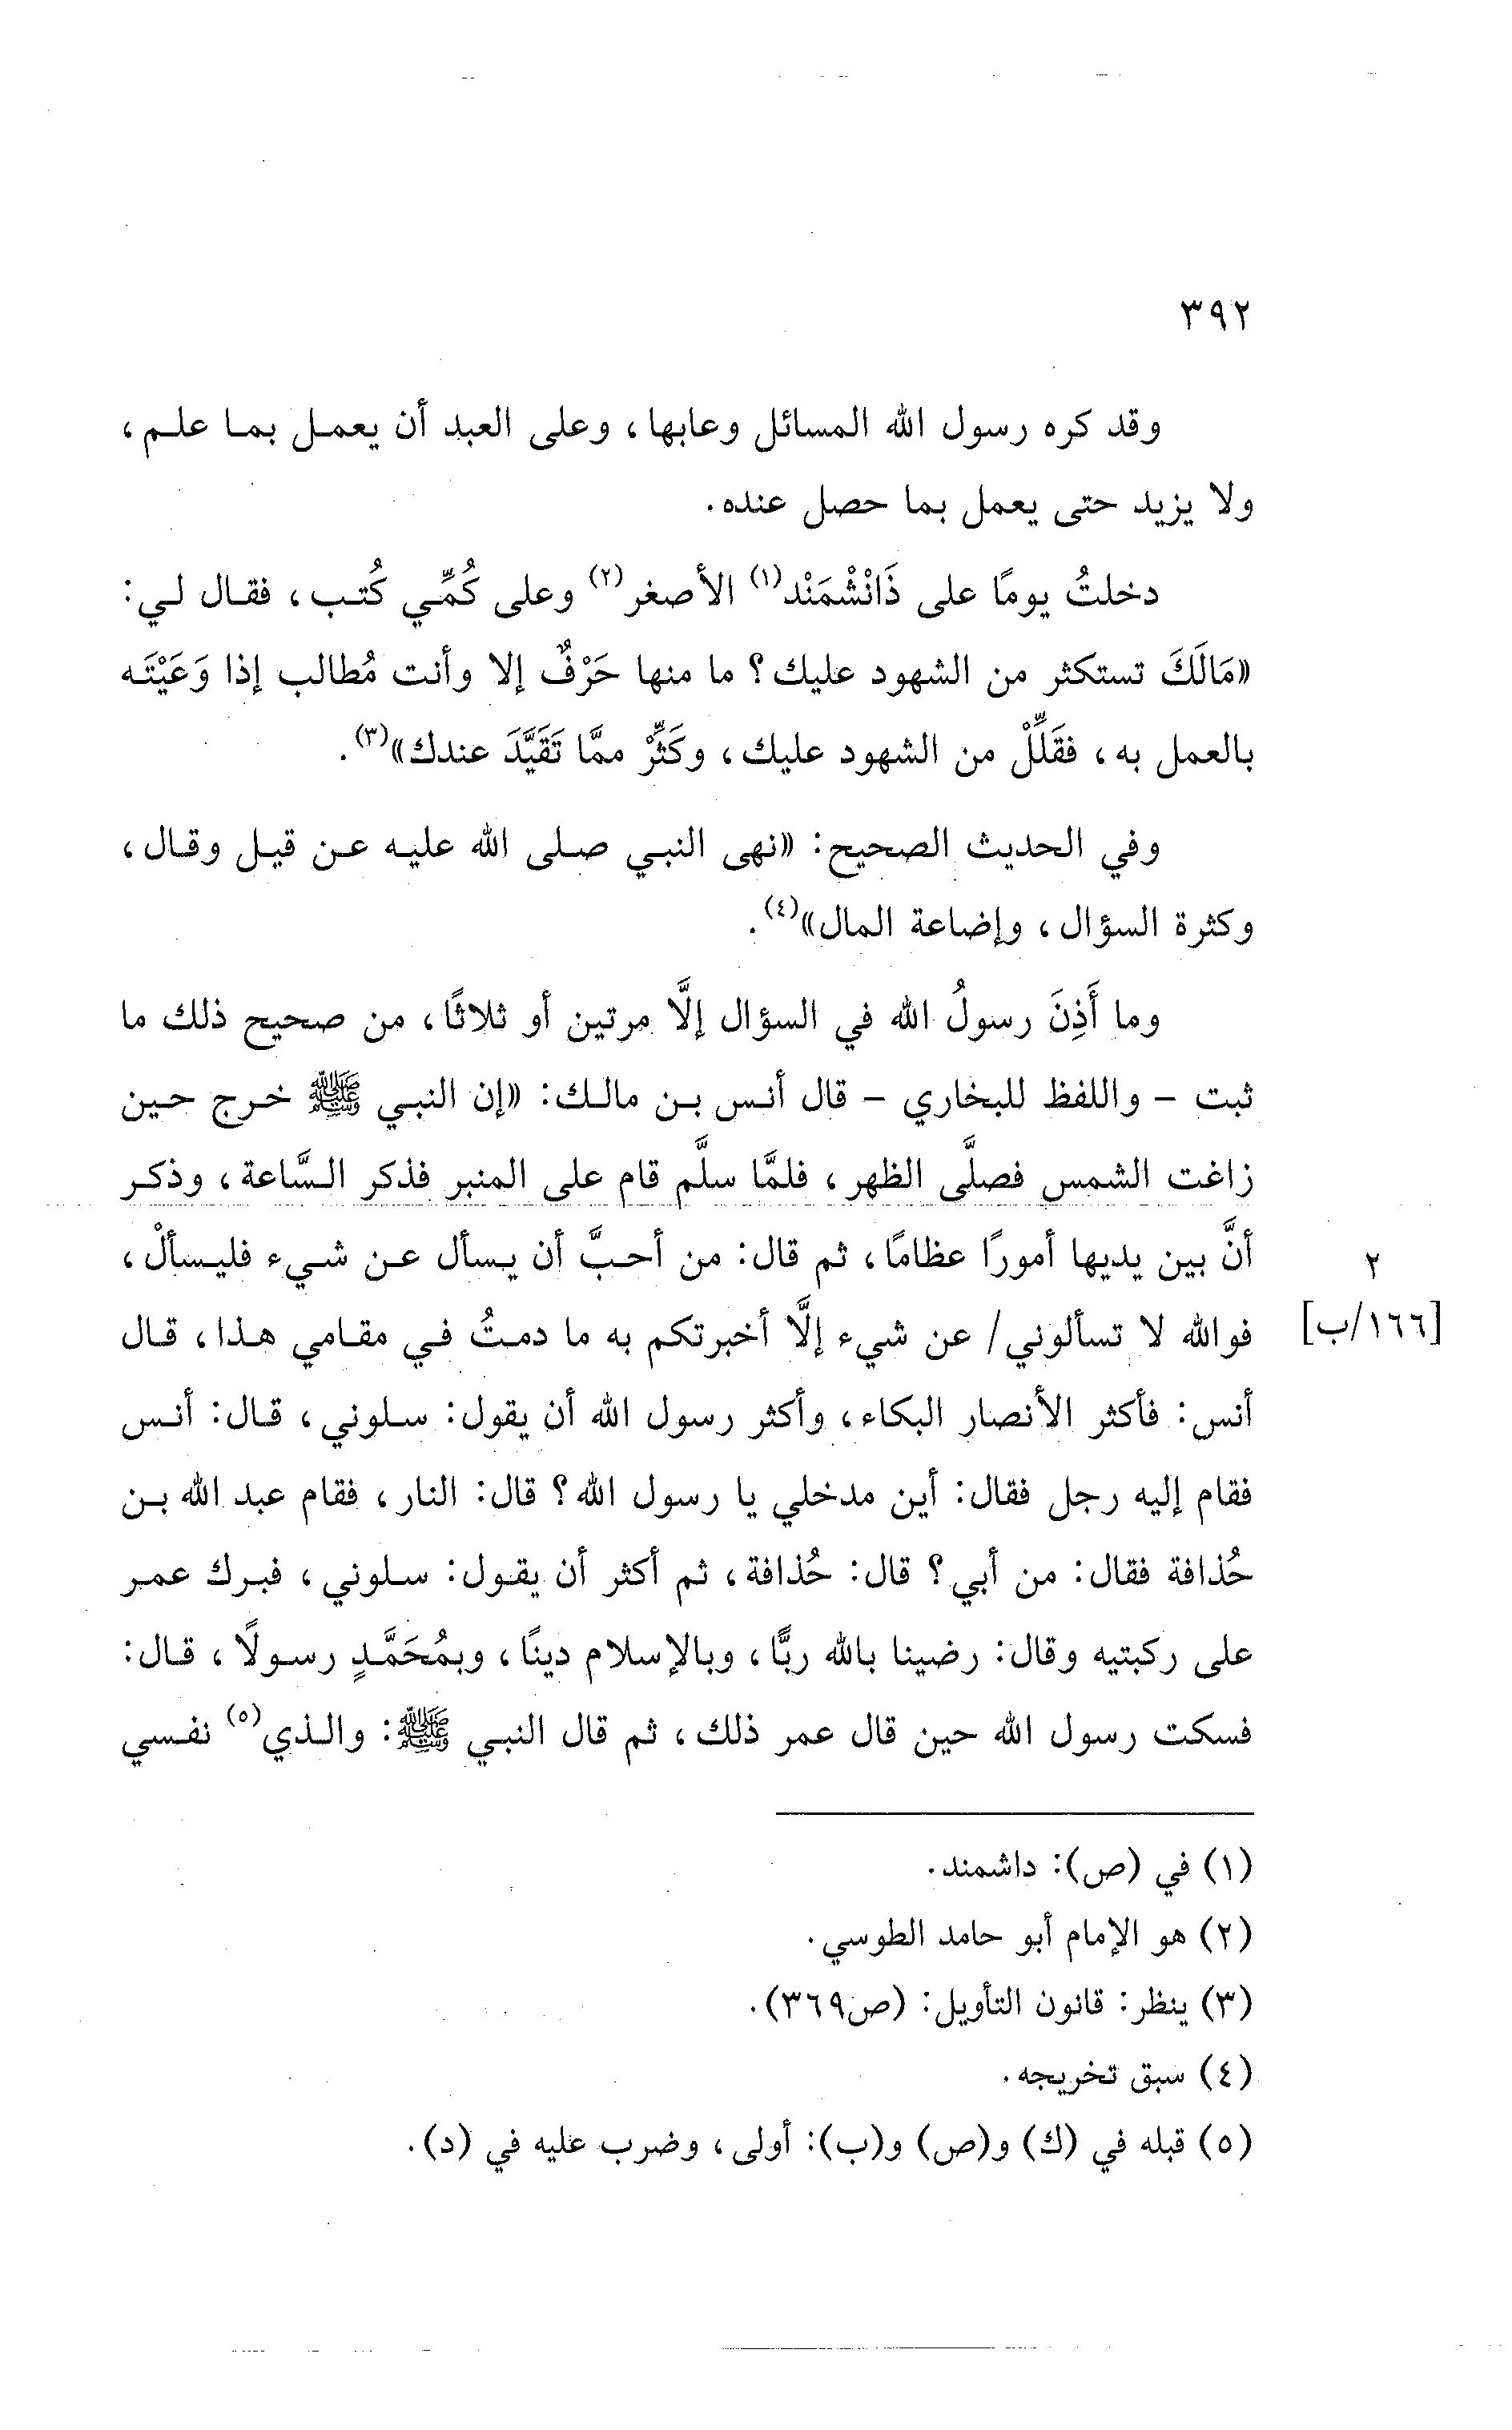 ٣٩٢
وقد كره رسول الله المسائل وعابها، وعلى العبد أن يعمل بما علم،
ولا يزيد حتى يعمل بما حصل عنده.
دخلتُ يومًا على ذَانْشْمَنْد(١) الأصغر(٢) وعلى كُمِّي كُتب، فقال لي:
«مَالَكَ تستكثر من الشهود عليك؟ ما منها حَرْفٌ إلا وأنت مُطالب إذا وَعَيْتَه
بالعمل به، فقَلِّلْ من الشهود عليك، وكَثِّرْ ممَّا تَقَيَّدَ عندك»(٣).
وفي الحديث الصحيح: «نهى النبي صلى الله عليه عن قيل وقال،
وكثرة السؤال، وإضاعة المال»(٤).
وما أَذِنَ رسولُ الله في السؤال إلَّا مرتين أو ثلاثًا، من صحيح ذلك ما
ثبت - واللفظ للبخاري - قال أنس بن مالك: «إن النبي ﷺ خرج حين
زاغت الشمس فصلَّى الظهر، فلمَّا سلَّم قام على المنبر فذكر السَّاعة، وذكر
أنَّ بين يديها أمورًا عظامًا، ثم قال: من أحبَّ أن يسأل عن شيء فليسألْ،
٢
فوالله لا تسألوني/ عن شيء إلَّا أخبرتكم به ما دمتُ في مقامي هذا، قال
[١٦٦/ب]
أنس: فأكثر الأنصار البكاء، وأكثر رسول الله أن يقول: سلوني، قال: أنس
فقام إليه رجل فقال: أين مدخلي يا رسول الله؟ قال: النار، فقام عبد الله بن
حُذافة فقال: من أبي؟ قال: حُذافة، ثم أكثر أن يقول: سلوني، فبرك عمر
على ركبتيه وقال: رضينا بالله ربًّا، وبالإسلام دينًا، وبمُحَمَّدٍ رسولًا، قال:
فسكت رسول الله حين قال عمر ذلك، ثم قال النبي ﷺ: والذي(٥) نفسي
(١) في (ص): داشمند.
(٢) هو الإمام أبو حامد الطوسي.
(٣) ينظر: قانون التأويل: (ص٣٦٩).
(٤) سبق تخريجه.
(٥) قبله في (ك) و(ص) و(ب): أولى، وضرب عليه في (د).